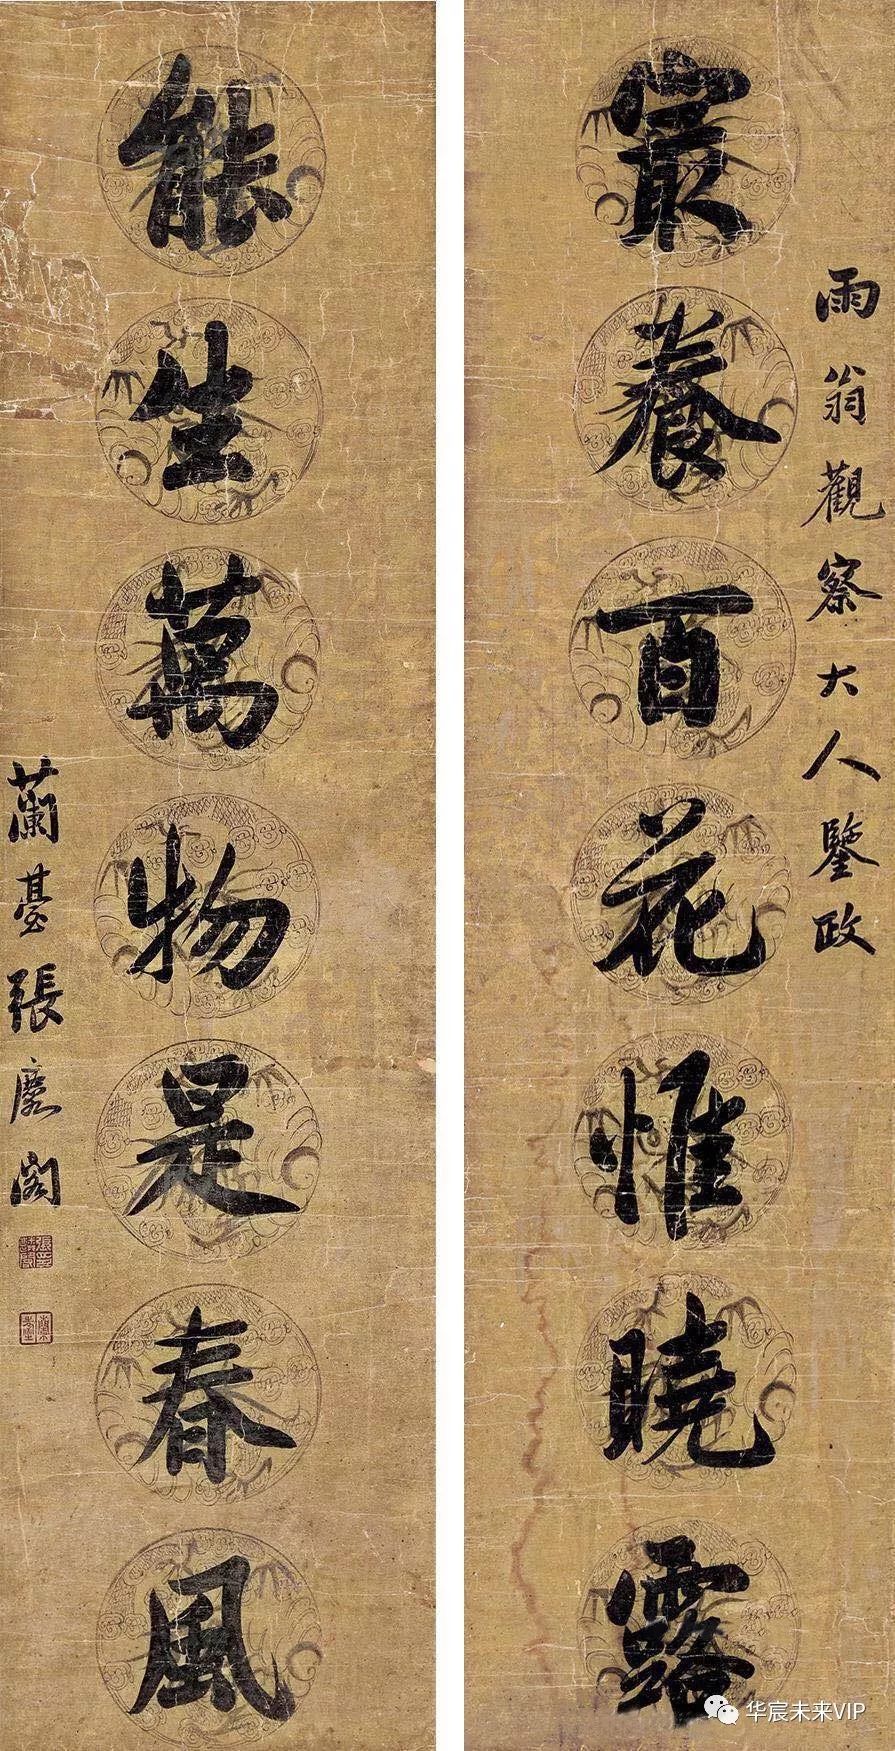 雨翁觀察大人鑒政
㝡養百花惟曉露
能生萬物是春風
蘭臺張閣
华宸未来VIP